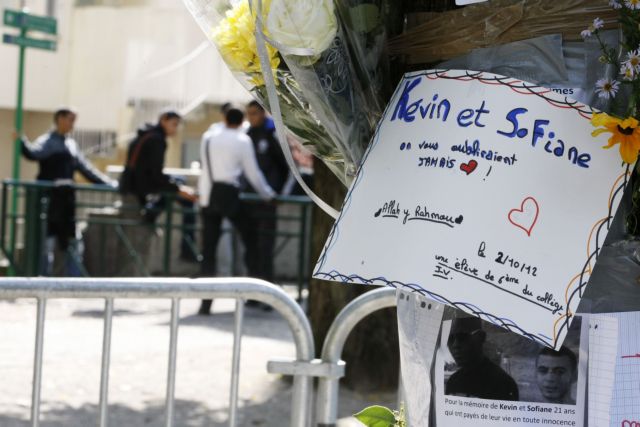 Kevin et Sofiane
on vous oublieraient
JAMAIS !
Allah y Rahmou
le 2/10/12
une élève de 6ème du collège
I.V.
mes
Pour la mémoire de Kevin et Sofiane 21 ans
qui ont payés de leur vie en toute innocence